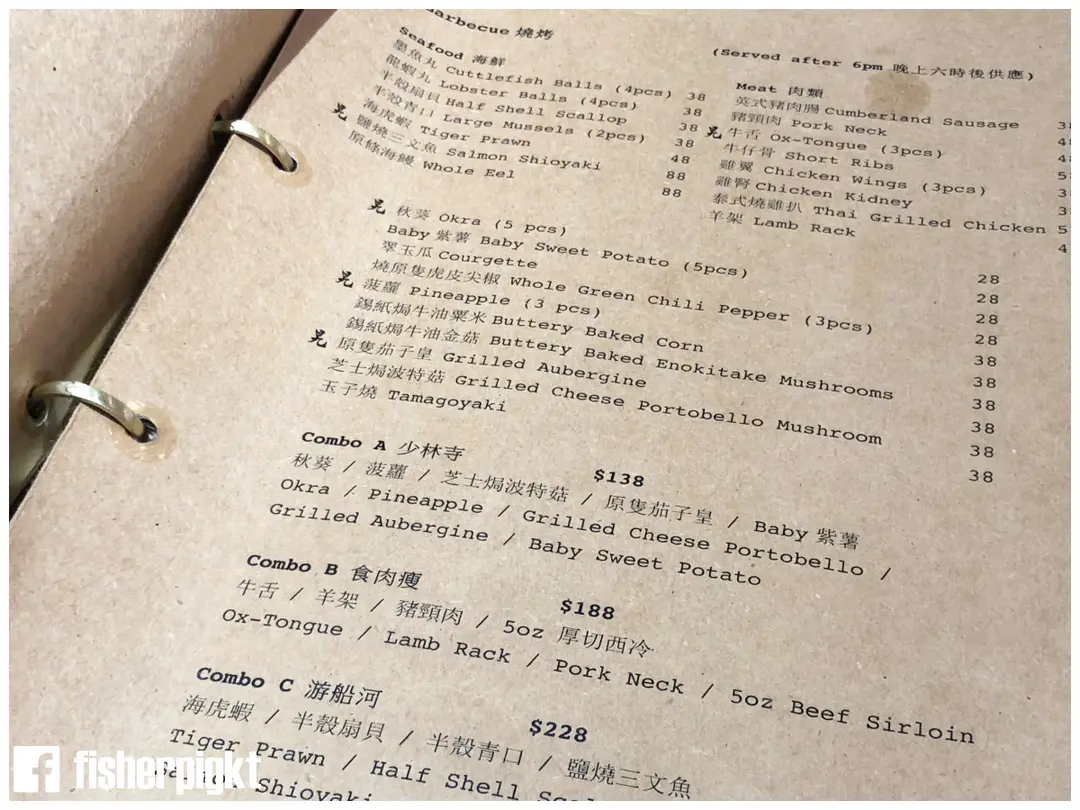 Barbecue 燒烤
Seafood 海鮮
墨魚丸 Cuttlefish Balls (4pcs) 38
龍蝦丸 Lobster Balls (4pcs) 38
半殼扇貝 Half Shell Scallop 38
半殼青口 Large Mussels (2pcs) 38
海虎蝦 Tiger Prawn 48
鹽燒三文魚 Salmon Shioyaki 88
原條海鰻 Whole Eel 88
(Served after 6pm 晚上六時後供應)
Meat 肉類
英式豬肉腸 Cumberland Sausage
豬頸肉 Pork Neck
牛舌 Ox-Tongue (3pcs)
牛仔骨 Short Ribs
雞翼 Chicken Wings (3pcs)
雞腎 Chicken Kidney
泰式燒雞扒 Thai Grilled Chicken
羊架 Lamb Rack
秋葵 Okra (5 pcs) 28
Baby 紫薯 Baby Sweet Potato (5pcs) 28
翠玉瓜 Courgette 28
燒原隻虎皮尖椒 Whole Green Chili Pepper (3pcs) 28
菠蘿 Pineapple (3 pcs) 38
錫紙焗牛油粟米 Buttery Baked Corn 38
錫紙焗牛油金菇 Buttery Baked Enokitake Mushrooms 38
原隻茄子皇 Grilled Aubergine 38
芝士焗波特菇 Grilled Cheese Portobello Mushroom 38
玉子燒 Tamagoyaki 38
Combo A 少林寺 $138
秋葵 / 菠蘿 / 芝士焗波特菇 / 原隻茄子皇 / Baby 紫薯
Okra / Pineapple / Grilled Cheese Portobello /
Grilled Aubergine / Baby Sweet Potato
Combo B 食肉瘦 $188
牛舌 / 羊架 / 豬頸肉 / 5oz 厚切西冷
Ox-Tongue / Lamb Rack / Pork Neck / 5oz Beef Sirloin
Combo C 游船河 $228
海虎蝦 / 半殼扇貝 / 半殼青口 / 鹽燒三文魚
Tiger Prawn / Half Shell
Shioyaki
fisherpigkt